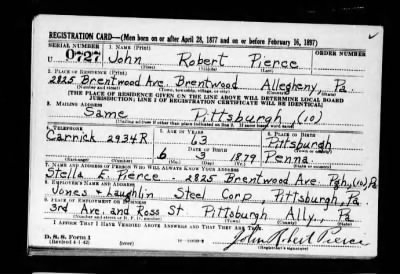 REGISTRATION CARD—(Men born on or after April 28, 1877 and on or before February 16, 1897)
SERIAL NUMBER 1. NAME (Print) ORDER NUMBER
U 0727 John Robert Pierce
(First) (Middle) (Last)
2. PLACE OF RESIDENCE (Print)
2825 Brentwood Ave. Brentwood Allegheny, Pa.
(Number and street) (Town, township, village, or city) (County) (State)
[THE PLACE OF RESIDENCE GIVEN ON THE LINE ABOVE WILL DETERMINE LOCAL BOARD
JURISDICTION; LINE 2 OF REGISTRATION CERTIFICATE WILL BE IDENTICAL]
3. MAILING ADDRESS
Same Pittsburgh, (10)
[Mailing address if other than place indicated on line 2. If same insert word same]
4. TELEPHONE 5. AGE IN YEARS 6. PLACE OF BIRTH
Carrick 2934R 63 Pittsburgh
DATE OF BIRTH (Town or county)
6 3 1879 Penna.
(Exchange) (Number) (Mo.) (Day) (Yr.) (State or country)
7. NAME AND ADDRESS OF PERSON WHO WILL ALWAYS KNOW YOUR ADDRESS
Stella E. Pierce - 2825 Brentwood Ave. Pgh, (10), Pa
8. EMPLOYER'S NAME AND ADDRESS
Jones & Laughlin Steel Corp, Pittsburgh, Pa.
9. PLACE OF EMPLOYMENT OR BUSINESS
3rd Ave. and Ross St. Pittsburgh Ally., Pa
(Number and street or R. F. D. number) (Town) (County) (State)
I AFFIRM THAT I HAVE VERIFIED ABOVE ANSWERS AND THAT THEY ARE TRUE.
D. S. S. Form 1
(Revised 4-1-42) John Robert Pierce